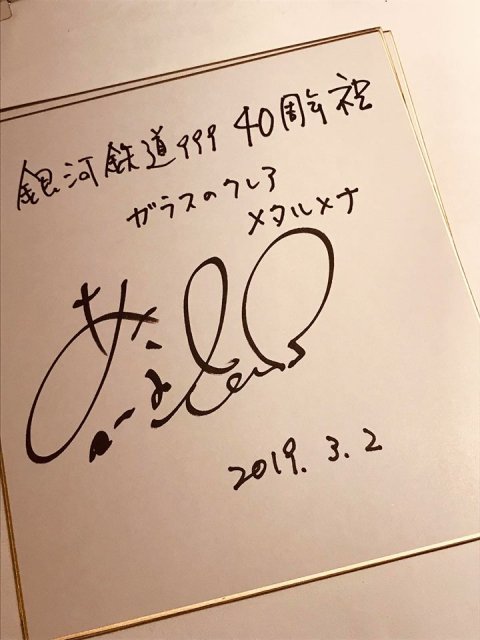 銀河鉄道999 40周年祝
ガラスのクレア
メタルメナ
2019.3.2